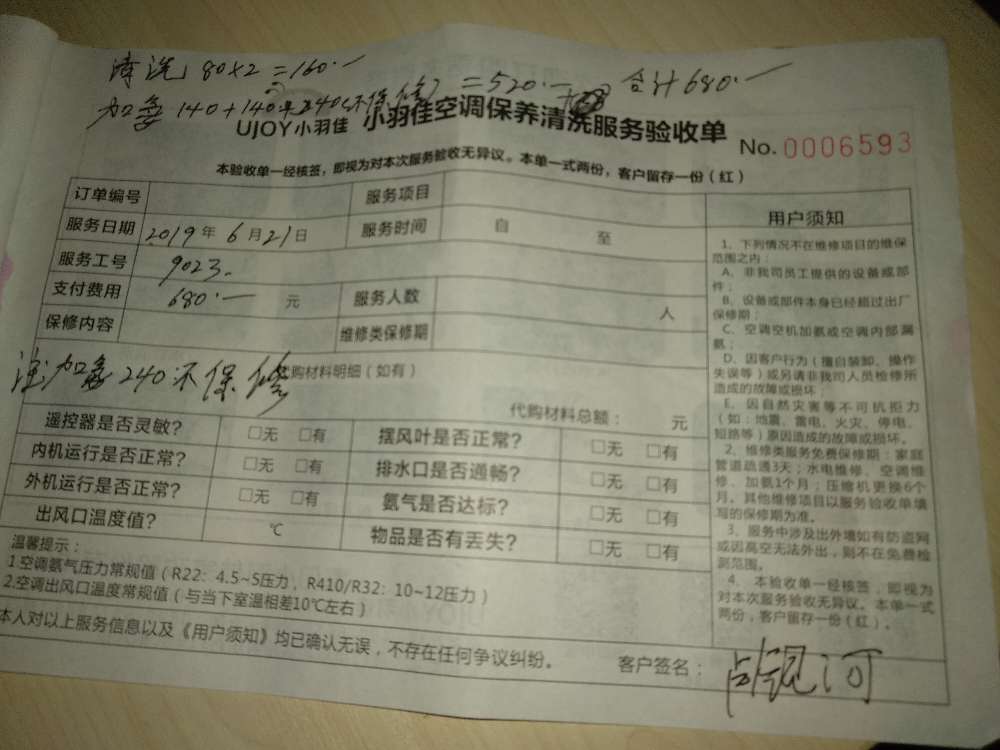 清洗 80×2=160.—
加氨 140+140+240(不保修)=520.— 合计680.—
UJOY小羽佳 小羽佳空调保养清洗服务验收单
No. 0006593
本验收单一经核签，即视为对本次服务验收无异议。本单一式两份，客户留存一份（红）
订单编号 服务项目
服务日期 2019年6月21日 服务时间 自 至
服务工号 9023.
支付费用 680.— 元 服务人数 人
保修内容 维修类保修期
注加氨240不保修 购材料明细（如有）
代购材料总额： 元
遥控器是否灵敏？ □无 □有 摆风叶是否正常？ □无 □有
内机运行是否正常？ □无 □有 排水口是否通畅？ □无 □有
外机运行是否正常？ □无 □有 氨气是否达标？ □无 □有
出风口温度值？ ℃ 物品是否有丢失？ □无 □有
温馨提示：
1.空调氨气压力常规值（R22：4.5~5压力，R410/R32：10~12压力）
2.空调出风口温度常规值（与当下室温相差10℃左右）
本人对以上服务信息以及《用户须知》均已确认无误，不存在任何争议纠纷。
客户签名：
用户须知
1、下列情况不在维修项目的维保
范围之内：
A、非我司员工提供的设备或部
件；
B、设备或部件本身已经超过出厂
保修期；
C、空调空机加氨或空调内部漏
氨；
D、因客户行为（擅自装卸、操作
失误等）或另请非我司人员检修所
造成的故障或损坏；
E、因自然灾害等不可抗拒力
（如：地震、雷电、火灾、停电、
短路等）原因造成的故障或损坏。
2、维修类服务免费保修期：家庭
管道疏通3天；水电维修、空调维
修、加氨1个月；压缩机更换6个
月。其他维修项目以服务验收单填
写的保修期为准。
3、服务中涉及出外墙如有防盗网
或因高空无法外出，则不在免费检
测范围。
4、本验收单一经核签，即视为
对本次服务验收无异议。本单一式
两份，客户留存一份（红）。